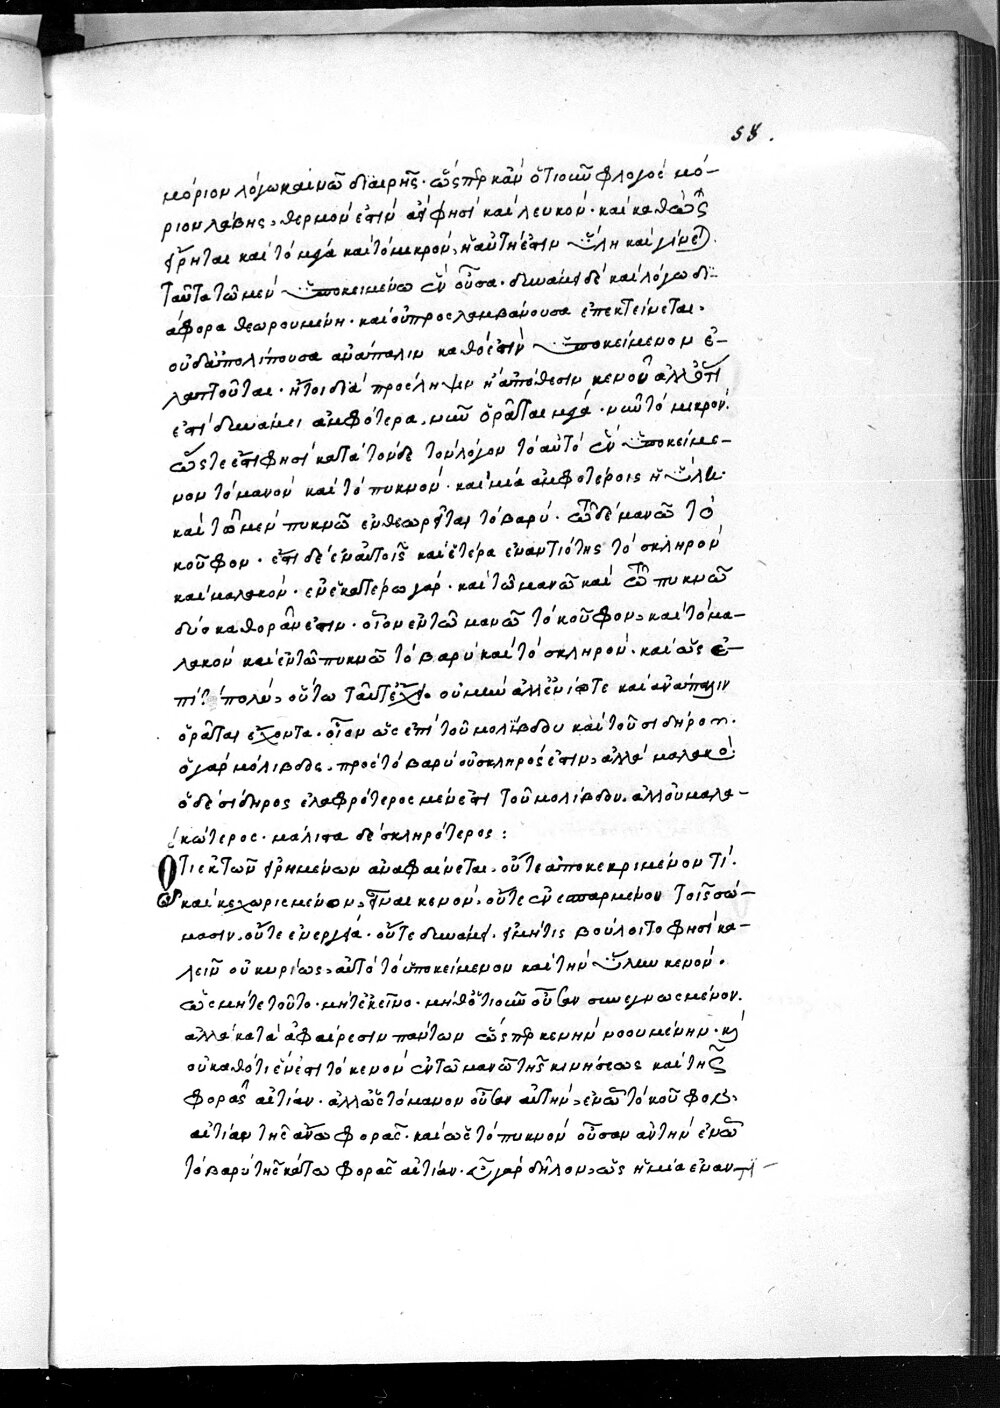 58.
μόριον λόγω καὶ νῶ διαιρῆς· ὥσπερ κἂν ὁτιοῦν φλογὸς μό-
ριον λάβης, θερμόν ἐστιν φησὶ καὶ λευκόν· καὶ καθὼς
εἴρηται καὶ τὸ μέγα καὶ τὸ μικρόν, ἡ αὐτή ἐστιν ὕλη καὶ
ταῦτα τῶ μὲν ὑποκειμένω ἓν οὖσα· δυνάμει δὲ καὶ λόγω δι-
άφορα θεωρουμένη· καὶ οὐ προσλαμβάνουσα ἐπεκτείνεται,
οὐδ' ἀπολιποῦσα ἀνάπαλιν καθό ἐστιν ὑποκείμενον ἐ-
λαττοῦται· ἤτοι διὰ πρόσληψιν ἢ ἀπόθεσιν κενοῦ ἀλλ' ὅτι
ἐστὶ δυνάμει ἀμφότερα, νῦν ὁρᾶται μέγα· νῦν τὸ μικρόν.
ὥστε ἔτι φησὶ κατὰ τόνδε τὸν λόγον τὸ αὐτὸ ἓν ὑποκείμε-
νον τὸ μανὸν καὶ τὸ πυκνόν· καὶ μία ἀμφοτέροις ἡ ὕλη·
καὶ τῶ μὲν πυκνῶ ἐνθεωρεῖται τὸ βαρύ· τῶ δὲ μανῶ τὸ
κοῦφον· ἔτι δὲ ἐν αὐτοῖς καὶ ἑτέρα ἐναντιότης τὸ σκληρὸν
καὶ μαλακόν· ἐν ἑκατέρω γὰρ· καὶ τῶ μανῶ καὶ τῶ πυκνῶ
δύο καθορᾶν ἐστιν· οἷον ἐν τῶ μανῶ τὸ κοῦφον, καὶ τὸ μα-
λακὸν καὶ ἐν τῶ πυκνῶ τὸ βαρὺ καὶ τὸ σκληρόν· καὶ ὡς ἐ-
πὶ τὸ πολύ, οὕτω ταῦτ' ἔχει· οὐ μὴν ἀλλ' ἐνίοτε καὶ ἀνάπαλιν
ὁρᾶται ἔχοντα· οἷον ὡς ἐπὶ τοῦ μολίβδου καὶ τοῦ σιδήρου·
ὁ γὰρ μόλιβδος, πρὸς τὸ βαρὺ οὐ σκληρός ἐστιν, ἀλλὰ μαλακός·
ὁ δὲ σίδηρος ἐλαφρότερος μέν ἐστι τοῦ μολίβδου, ἀλλ' οὐ μαλα-
κώτερος· μάλιστα δὲ σκληρότερος:
Ὅτι ἐκ τῶν εἰρημένων ἀναφαίνεται, οὔτε ἀποκεκριμένον τί·
καὶ κεχωρισμένον, εἶναι κενόν, οὔτε ἐνεσπαρμένον τοῖς σώ-
μασιν, οὔτε ἐνεργεία· οὔτε δυνάμει, εἰ μή τις βούλοιτο φησὶ κα-
λεῖν οὐ κυρίως, αὐτὸ τὸ ὑποκείμενον καὶ τὴν ὕλην κενόν·
ὡς μήτε τοῦτο· μήτ' ἐκεῖνο· μήθ' ὁτιοῦν οὖσαν συνεγνωσμένον.
ἀλλὰ κατὰ ἀφαίρεσιν πάντων ὥσπερ κενὴν νοουμένην· καὶ
οὐ καθ' ὅτι ἔνεστι τὸ κενὸν ἐν τῶ μανῶ τῆς κινήσεως καὶ τῆς
φορᾶς αἰτίαν· ἀλλ' ὡς τὸ μανὸν οὖσαν αὐτήν, ἐν ὧ τὸ κοῦφον,
αἰτίαν τῆς ἄνω φορᾶς· καὶ ὡς τὸ πυκνὸν οὖσαν αὐτὴν ἐν ὧ
τὸ βαρὺ τῆς κάτω φορᾶς αἰτίαν· γὰρ δῆλον, ὡς ἡ μία ἐναντι-